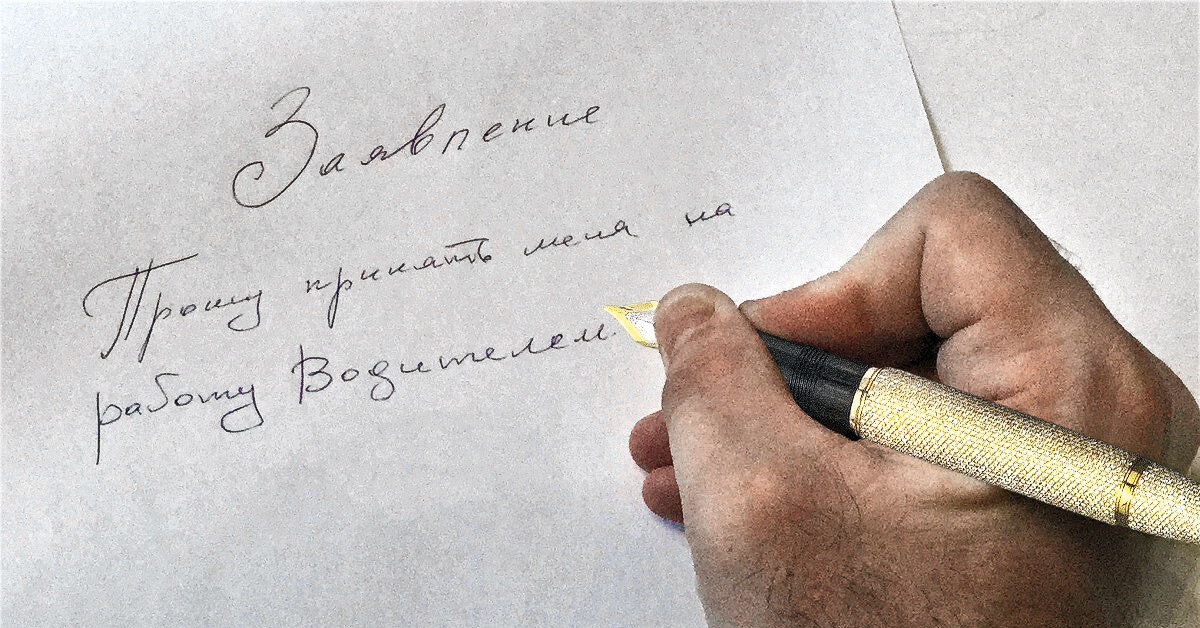 Заявление
Прошу принять меня на
работу Водителем.